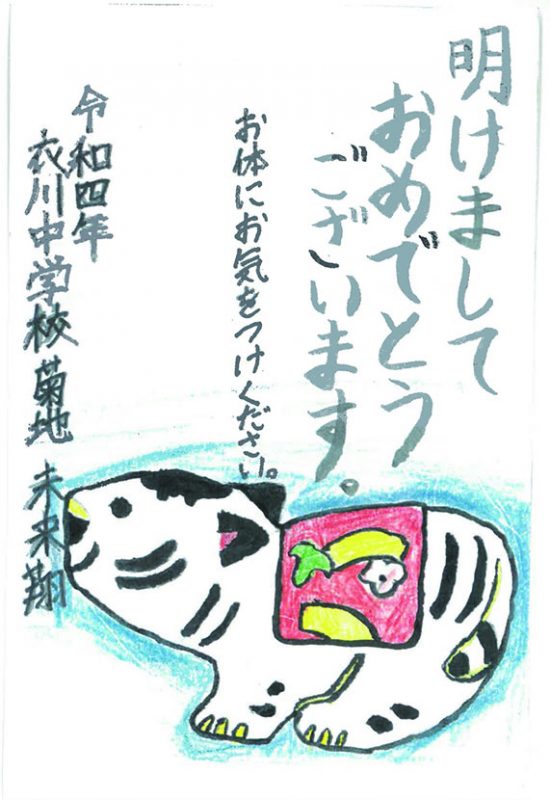 明けまして
おめでとう
ございます。
お体にお気をつけください。
令和四年
衣川中学校 菊地 未来翔